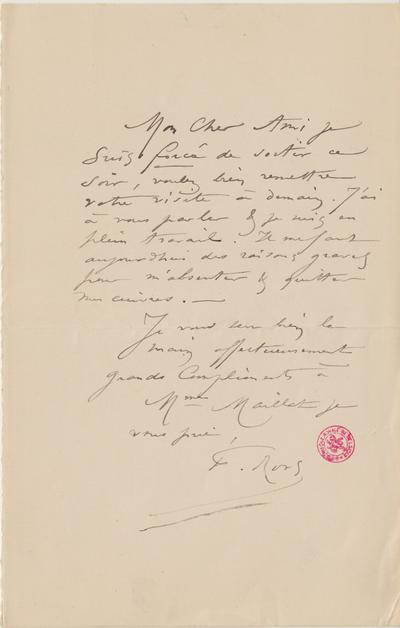 Mon Cher Ami je
suis forcé de sortir ce
soir, voulez bien remettre
votre visite à demain. J'ai
à vous parler & je suis en
plein travail. Il me faut
aujourd'hui des raisons graves
pour m'absenter & quitter
mes cuivres. —
Je vous serre bien la
main affectueusement
grands Compliments à
Mme Maillet je
vous prie,
F. Rops